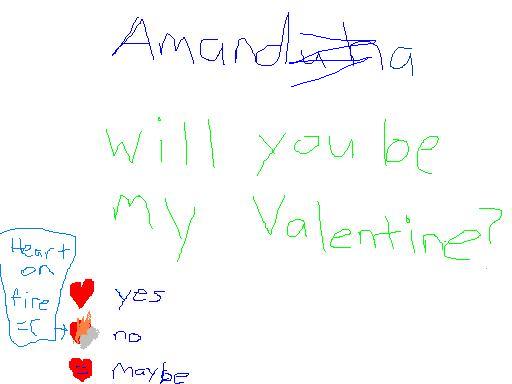 Amanda
will you be
my Valentine?
Heart
on
fire
=(
yes
no
maybe